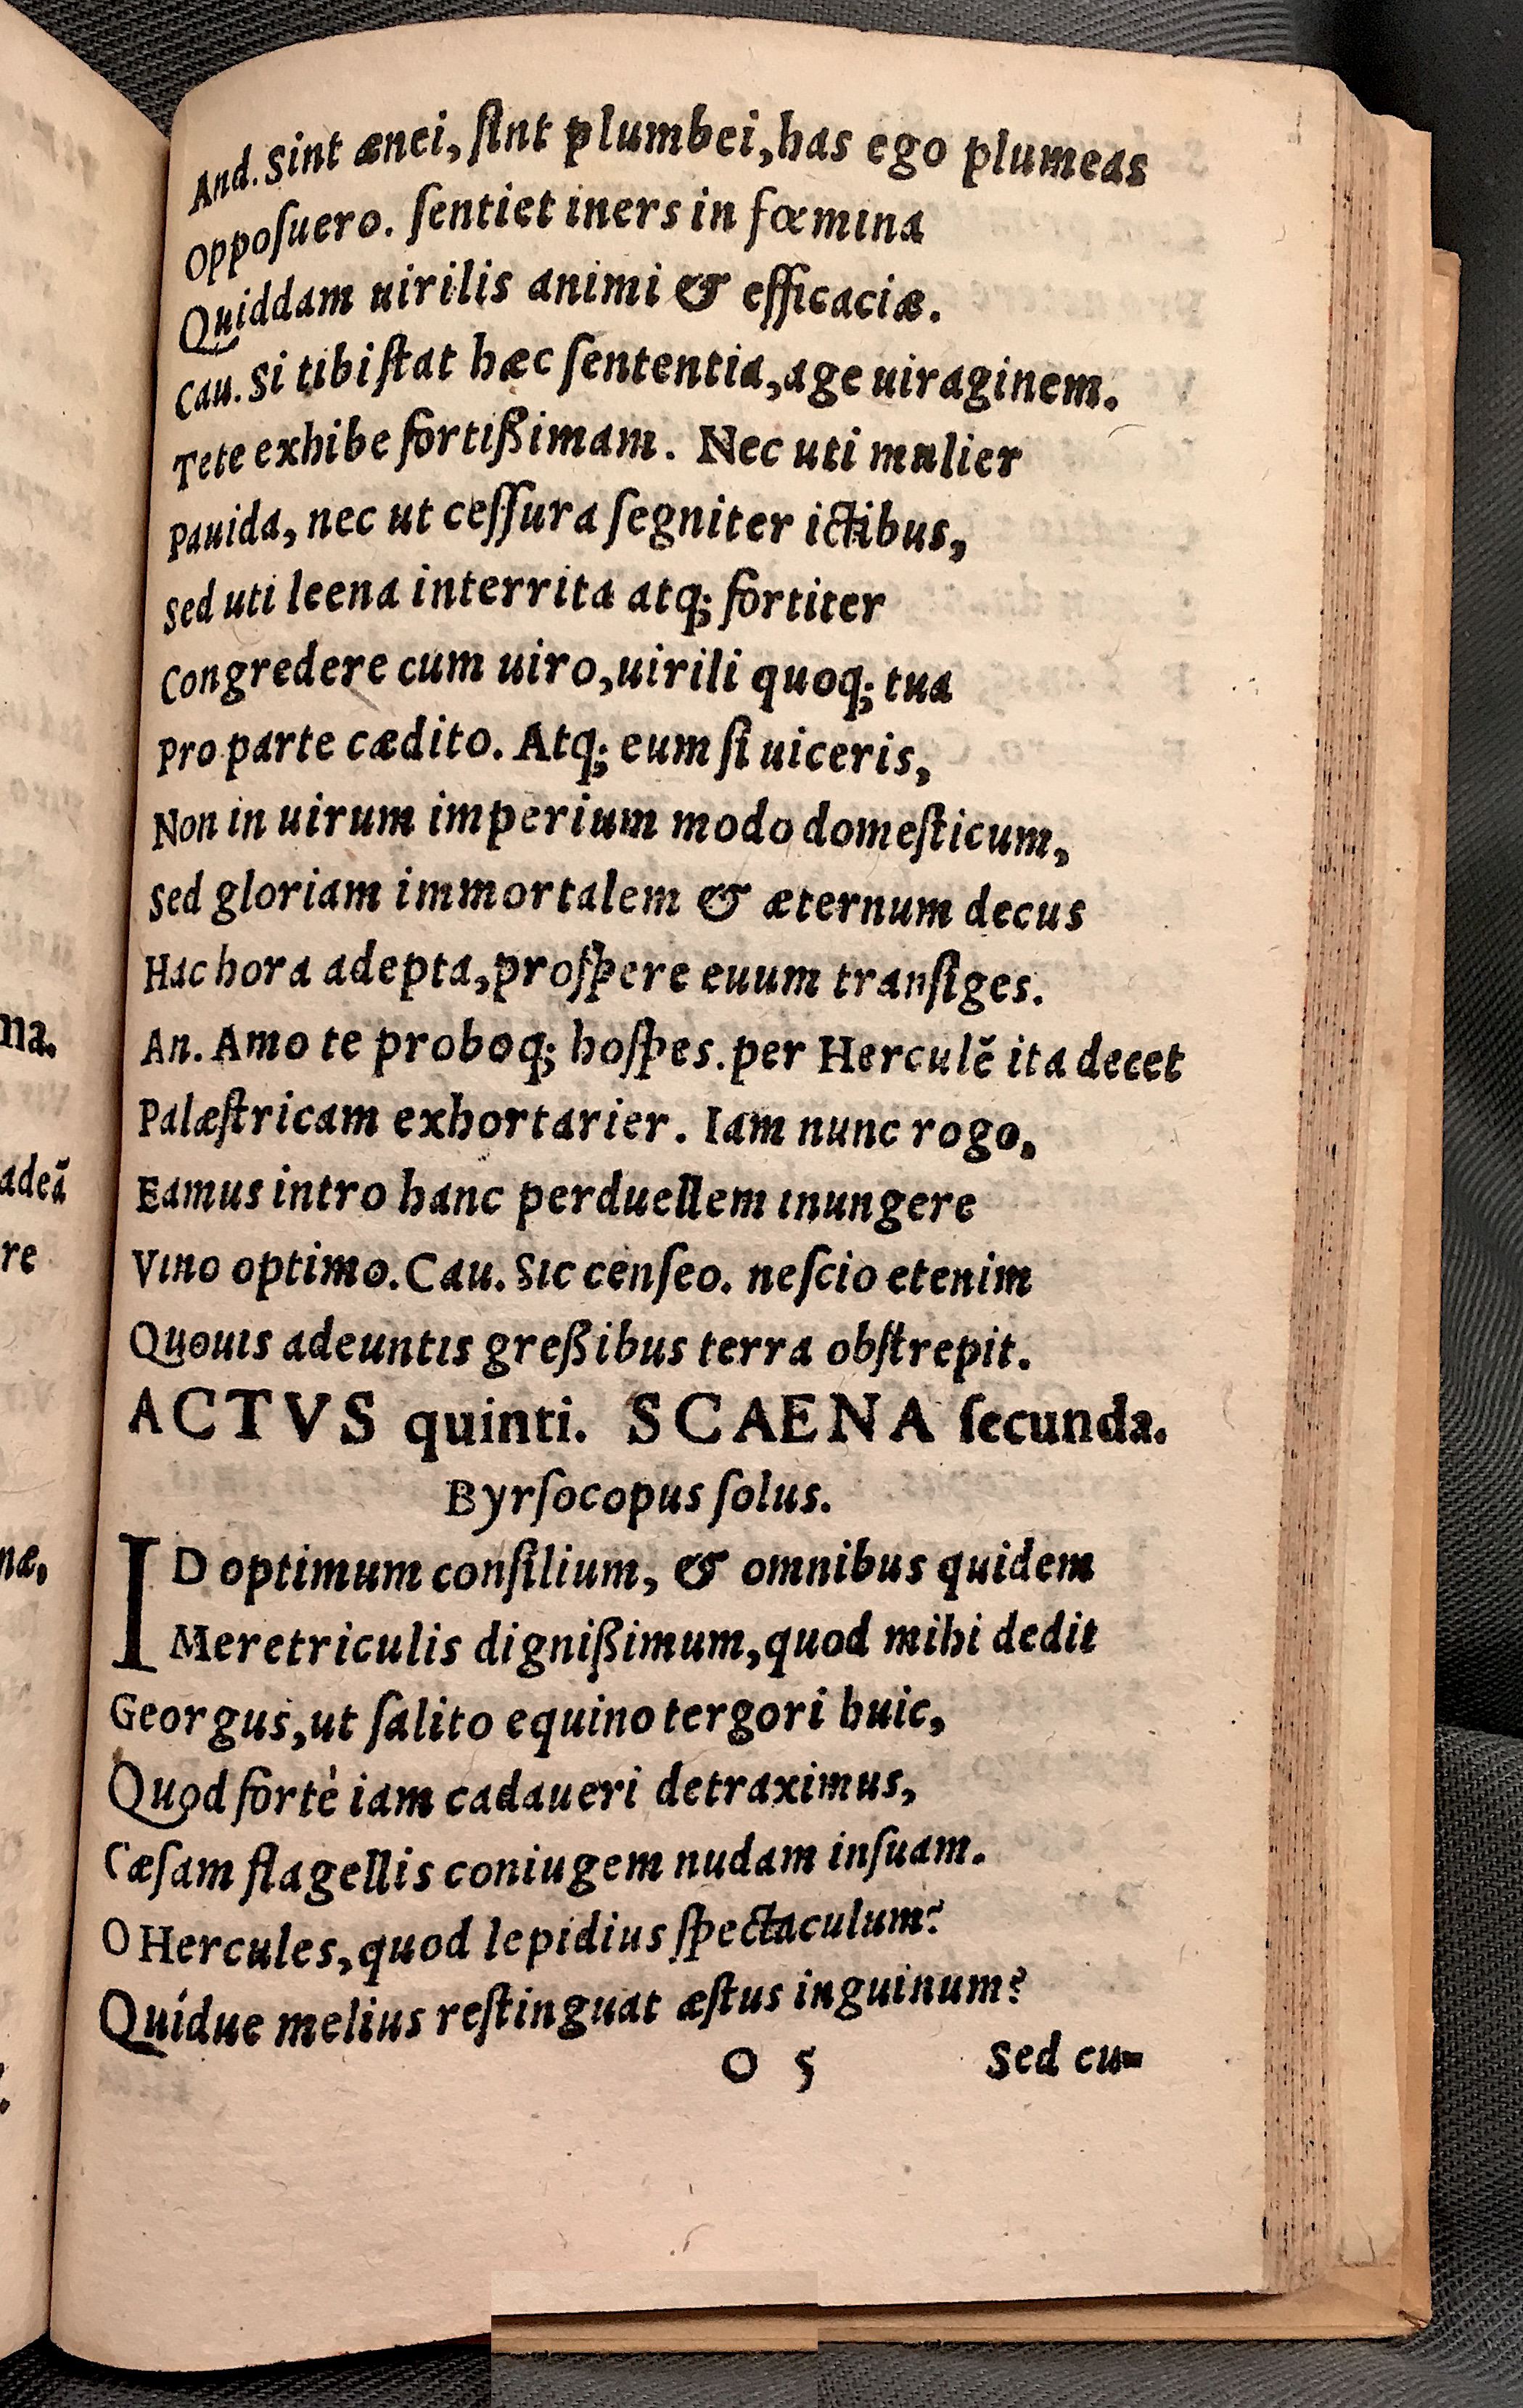 And. Sint ænei, ſint plumbei, has ego plumeas
Oppoſuero. ſentiet iners in fœmina
Quiddam uirilis animi & efficaciæ.
Cau. Si tibi ſtat hæc ſententia, age uiraginem.
Tete exhibe fortißimam. Nec uti mulier
Pauida, nec ut ceſſura ſegniter ictibus,
Sed uti leena interrita atq; fortiter
Congredere cum uiro, uirili quoq; tua
Pro parte cædito. Atq; eum ſi uiceris,
Non in uirum imperium modo domeſticum,
Sed gloriam immortalem & æternum decus
Hac hora adepta, proſpere euum tranſiges.
An. Amo te proboq; hoſpes. per Herculẽ ita decet
Palæſtricam exhortarier. Iam nunc rogo,
Eamus intro hanc perduellem inungere
Vino optimo. Cau. Sic cenſeo. neſcio etenim
Quouis adeuntis greßibus terra obſtrepit.
ACTVS quinti. SCAENA ſecunda.
Byrſocopus ſolus.
ID optimum conſilium, & omnibus quidem
Meretriculis digniſſimum, quod mihi dedit
Georgus, ut ſalito equino tergori huic,
Quod fortè iam cadaueri detraximus,
Cæſam flagellis coniugem nudam inſuam.
O Hercules, quod lepidius ſpectaculum?
Quídue melius reſtinguat æſtus inguinum?
O 5 Sed cu-
na.
adeã
re
næ,